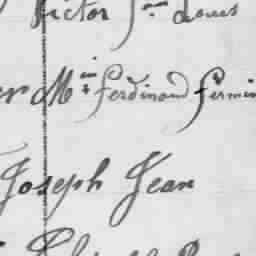 Victor Jn. Louis
er Min. Ferdinand Firmin
Joseph Jean